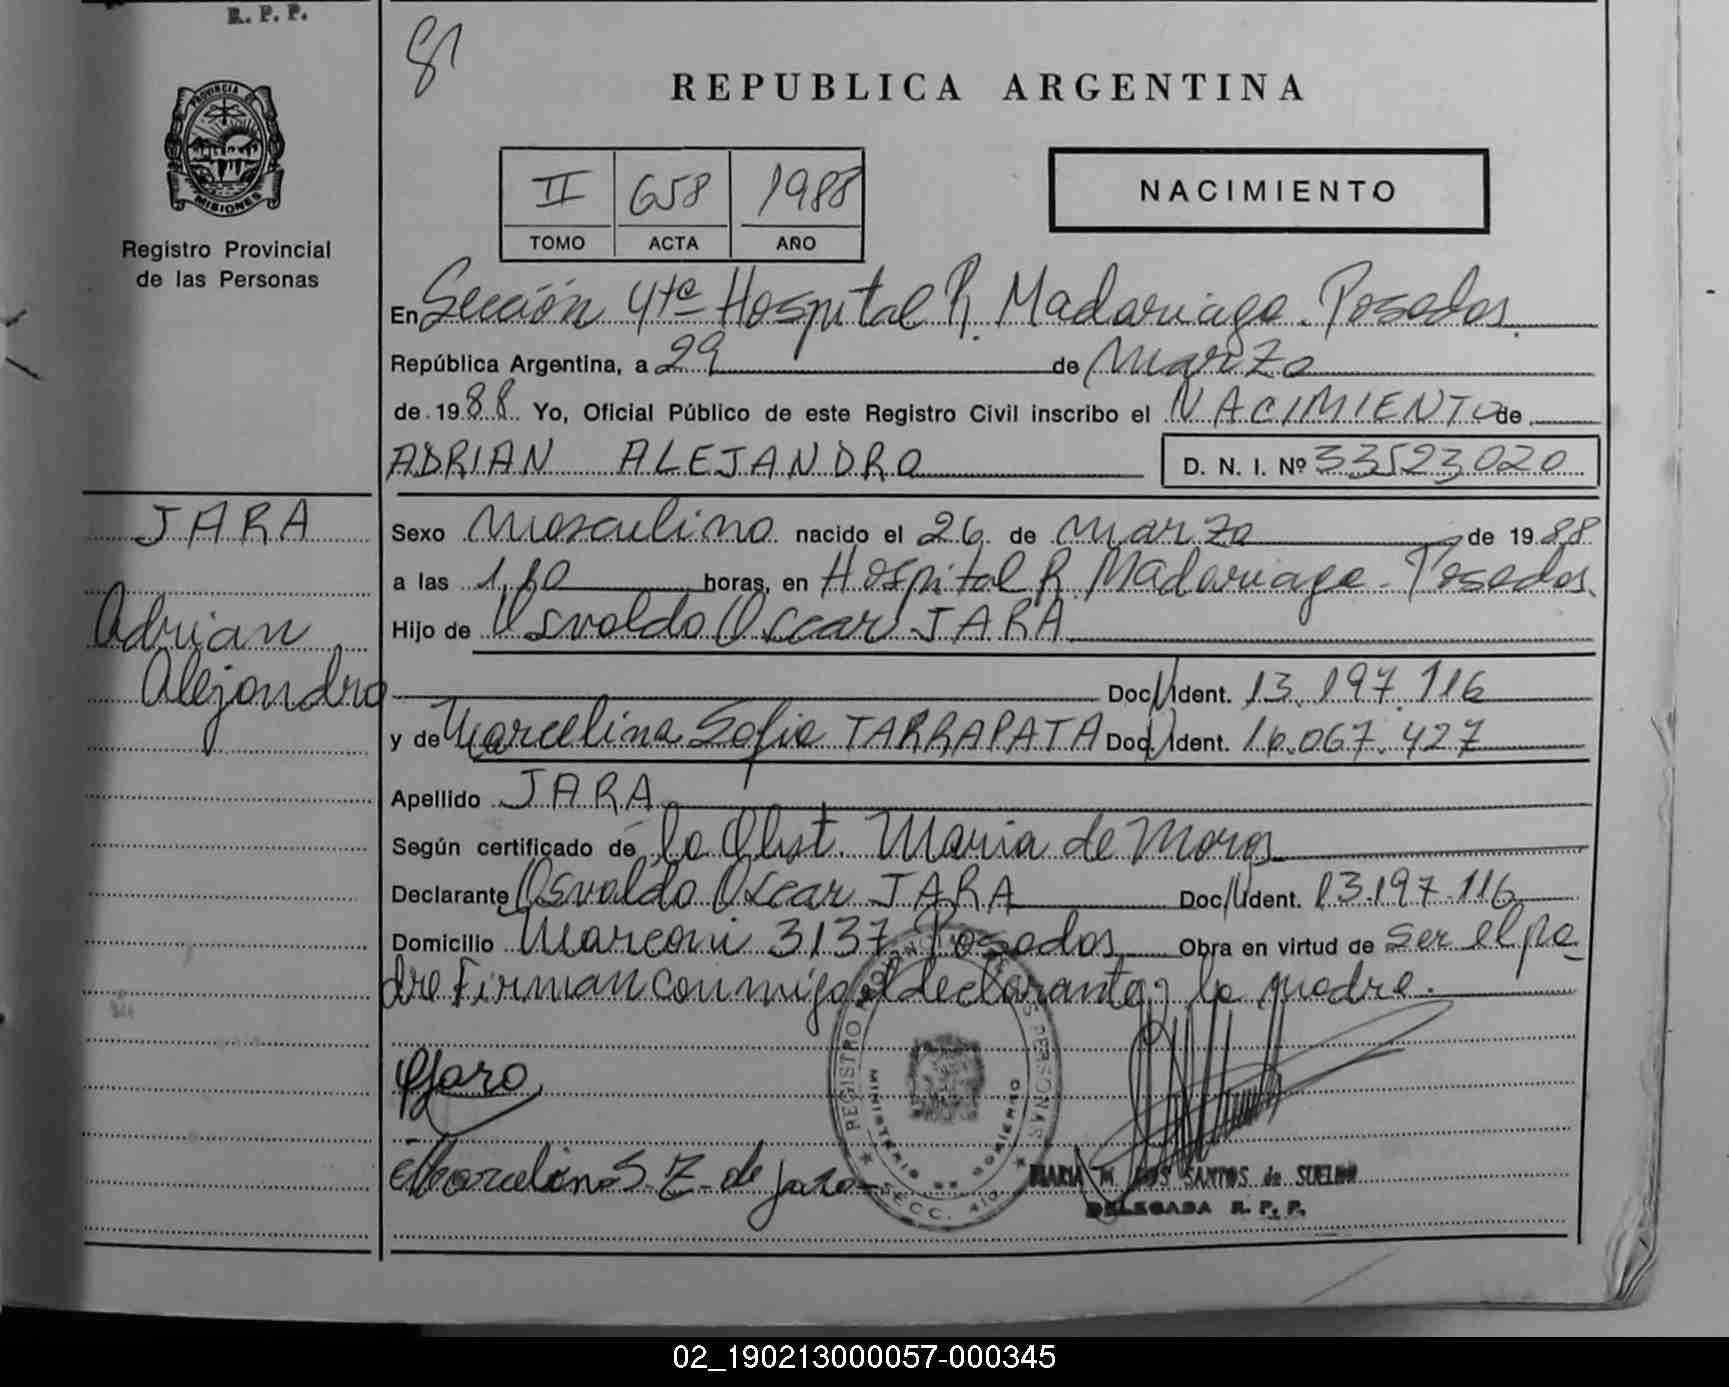 R. P. P.
81
PROVINCIA DE
MISIONES
Registro Provincial
de las Personas
REPUBLICA ARGENTINA
II 658 1988
TOMO ACTA AÑO
NACIMIENTO
En Sección 4ta Hospital R. Madariaga. Posadas.
República Argentina, a 29 de Marzo
de 1988 Yo, Oficial Público de este Registro Civil inscribo el NACIMIENTO de
ADRIAN ALEJANDRO D. N. I. Nº 33523020
JARA
Adrian
Alejandro
Sexo Masculino nacido el 26 de Marzo de 1988
a las 1,10 horas, en Hospital R. Madariaga - Posadas.
Hijo de Osvaldo Oscar JARA
Doc/Ident. 13.197.116
y de Marcelina Sofia TARRAPATA Doc/Ident. 16.067.427
Apellido JARA
Según certificado de la Obst. Maria de Mora
Declarante Osvaldo Oscar JARA Doc/Ident. 13.197.116
Domicilio Marconi 3137 Posadas Obra en virtud de ser el pa-
dre Firman conmigo el declarante y la madre.
OJara
Marcelina S. Z. de Jara
REGISTRO PERSONAS
MINISTERIO DE GOBIERNO
SECC. 4ta
MARIA M. DOS SANTOS de SUELDO
DELEGADA R. P. P.
02_190213000057-000345